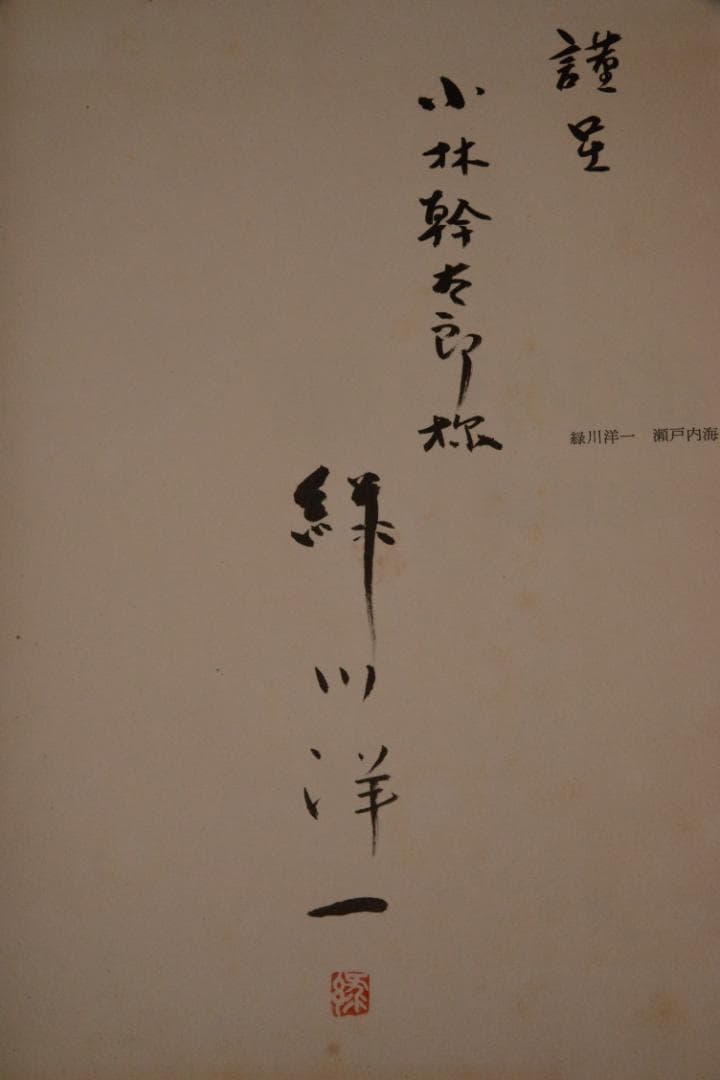 謹呈
小林幹太郎様
緑川洋一
緑
緑川洋一 瀬戸内海